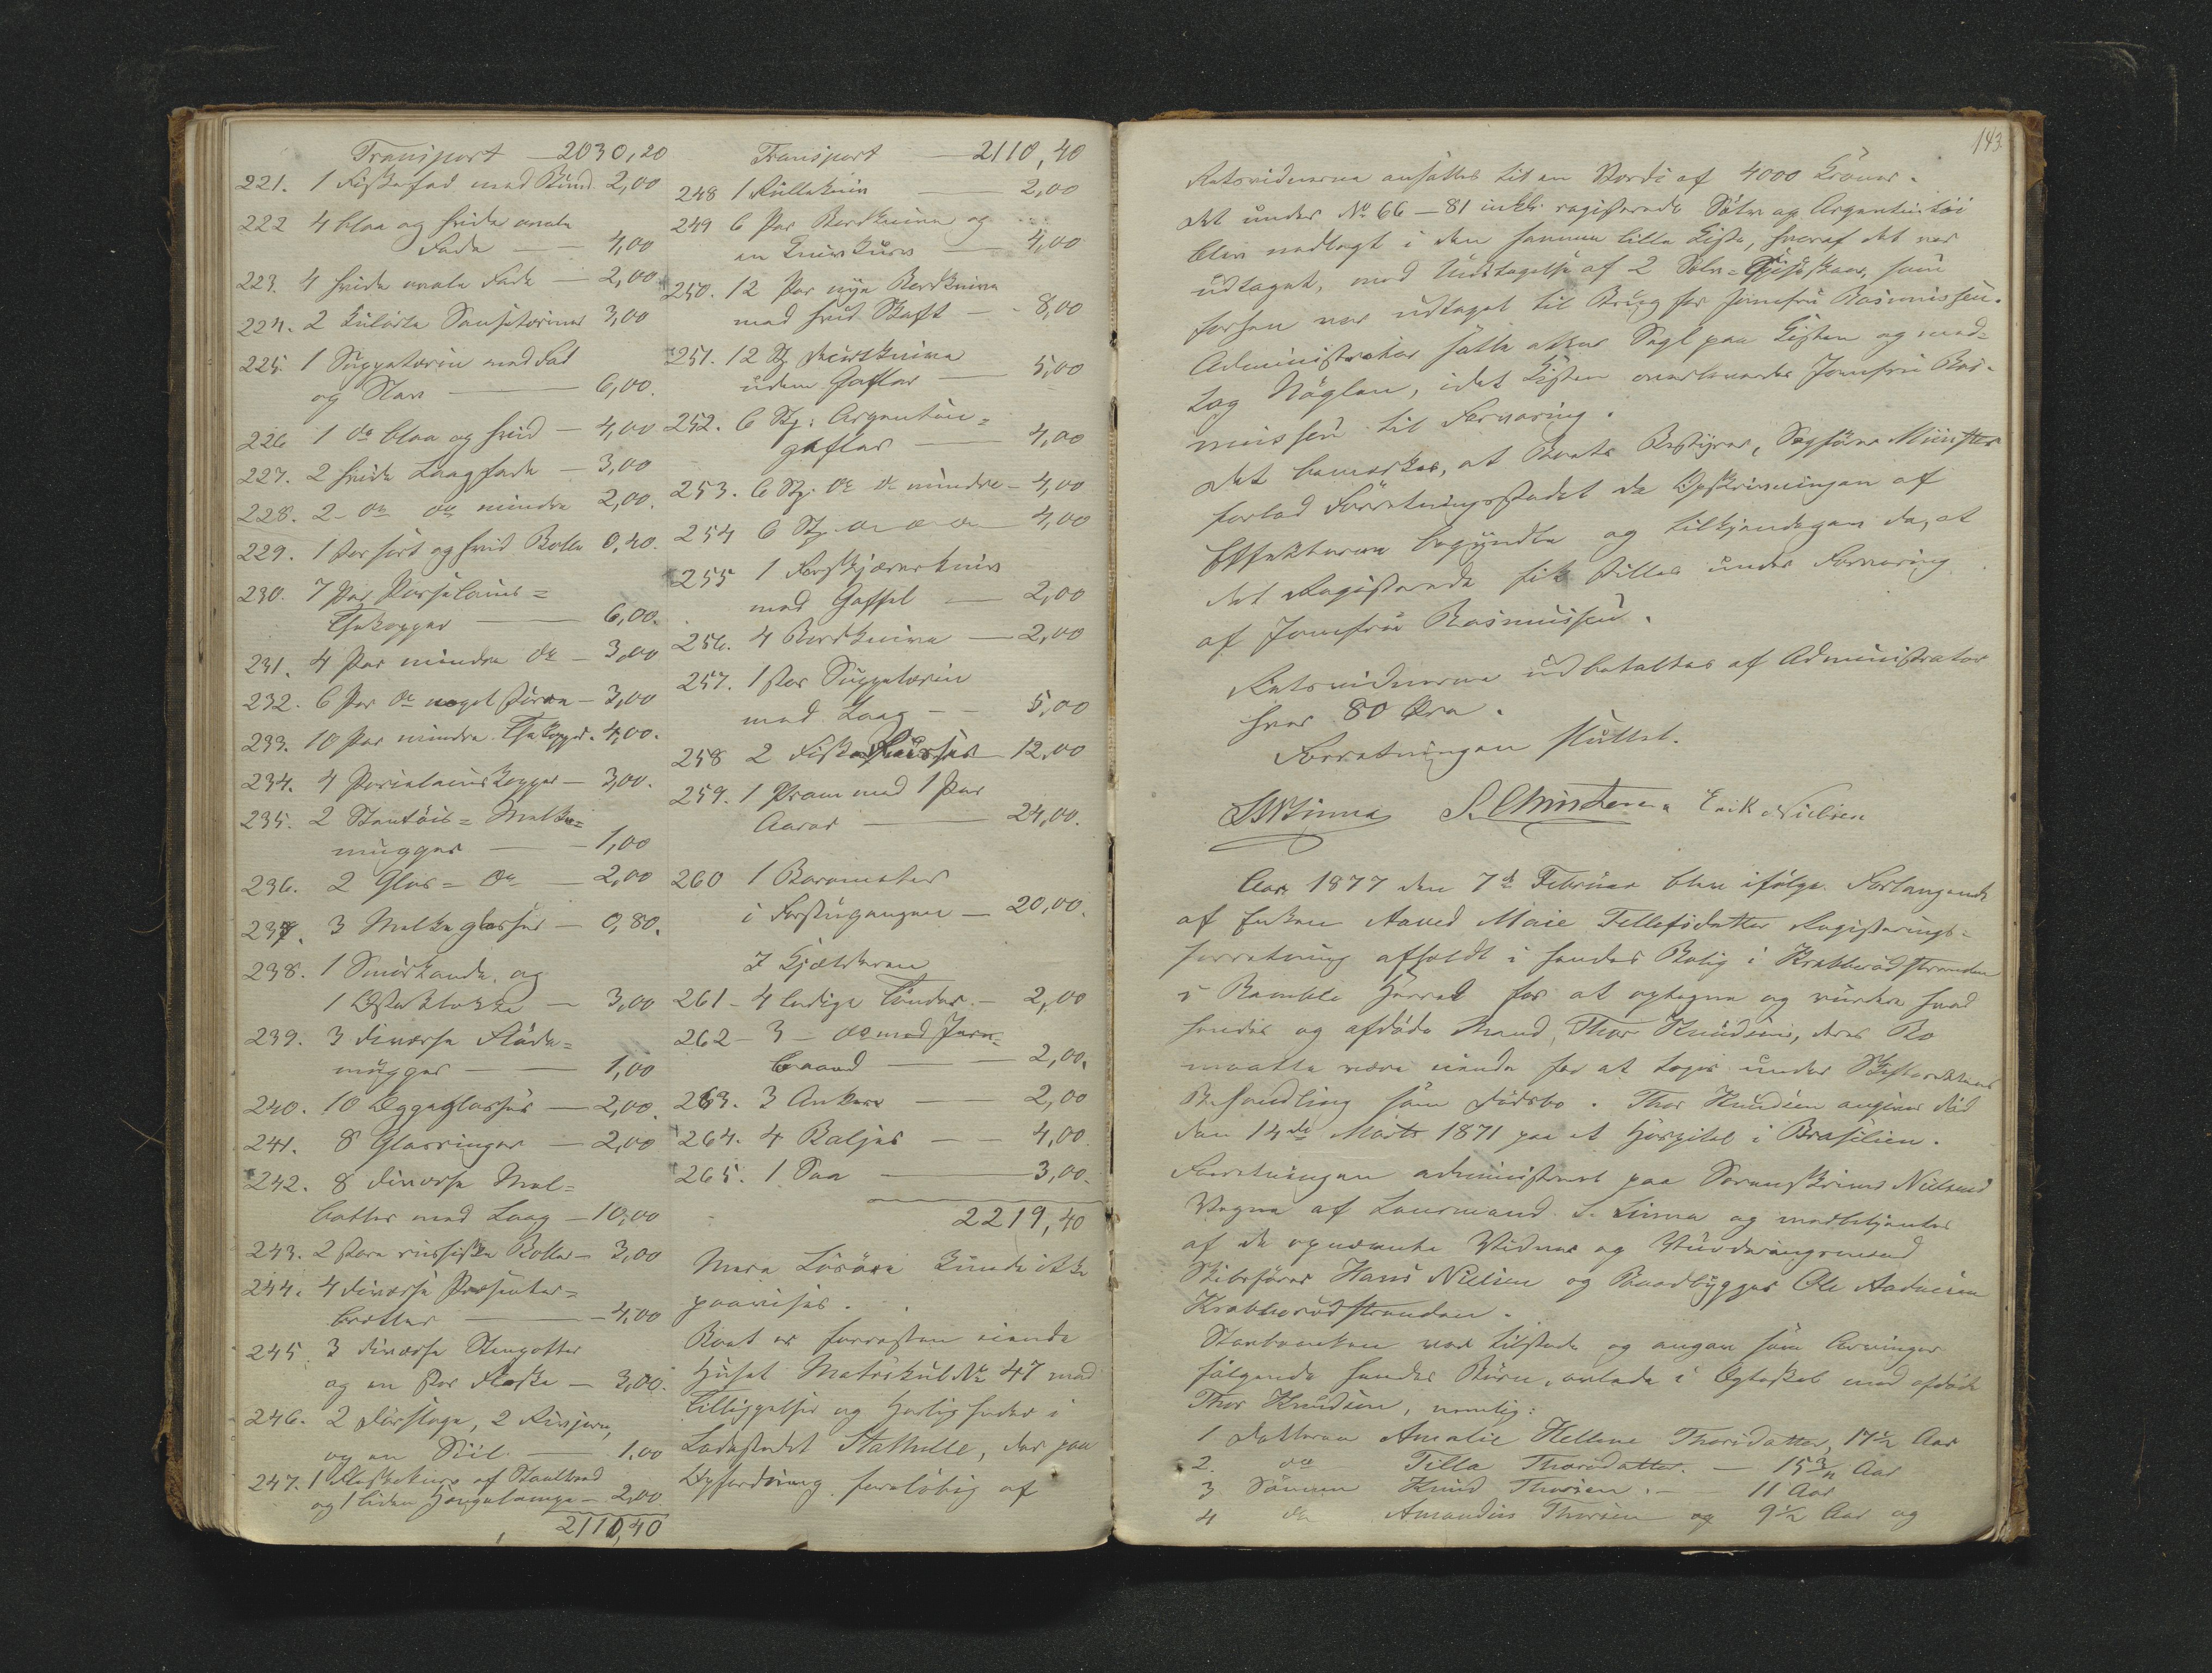 Transport — 2030,20
221. 1 Fiskefad med Bund 2,00
222 4 blaa og hvide ovale
Fade — 4,00
223. 4 hvide ovale Fade — 2,00
224. 2 Kulørte Sauseterriner 3,00
225. 1 Suppeterrin med Fad
og Slev — 6,00.
226 1 do blaa og hvid — 4,00
227. 2 hvide Laagfade — 3,00
228. 2 - do do mindre 2,00.
229. 1 stor sort og hvid Bolle 0,40.
230. 7 Par Porselains=
Thekopper — 6,00.
231. 4 Par mindre do — 3,00
232. 6 Par do noget større — 3,00
233. 10 Par mindre Thekopper. 4,00.
234. 4 Porselainskopper — 3,00.
235. 2 Stentøis= Melke=
mugger — 1,00
236. 2 Glas= do — 2,00
237. 3 Melkeglasser — 0,80.
238. 1 Smørkande og
1 Osteklokke — 3,00
239. 3 diverse Fløde=
mugger — 1,00
240. 10 Eggeglasser — 2,00.
241. 8 Glasringer — 2,00
242. 8 diverse Mel=
bøtter med Laag — 10,00
243. 2 store russiske Boller — 3,00
244. 4 diverse Presenter=
bretter — 4,00
245. 3 diverse Stenpotter
og en stor Flaske — 3,00.
246. 2 Dørslage, 2 Rivjern,
og en Siil — 1,00
247. 1 Flaskekurv af Staaltraad
og 1 liden Hængelampe — 2,00
2110,40
Transport — 2110,40
248 1 Rullekniv — 2,00
249 6 Par Bordknive og
en Knivkurv — 4,00
250. 12 Par nye Bordknive
med hvid Skaft — 8,00
251. 12 St. Dessertknive
uden Gafler — 5,00
252. 6 Stk: Argentin=
gafler — 4,00
253. 6 Stk. do do mindre — 4,00
254 6 Stk. do do do — 4,00
255 1 Forskjærerkniv
med Gaffel — 2,00
256. 4 Bordknive — 2,00
257. 1 stor Suppeterrin
med Laag — 5,00
258 2 Fiske — 12,00
259. 1 Pram med 1 Par
Aarer — 24,00.
260 1 Barometer
i Forstugangen — 20,00.
I Kjælderen
261 - 4 ledige Tønder. — 2,00
262 - 3 — do med Jern=
baand — 2,00.
263. 3 Ankere — 2,00
264. 4 Baljer — 4,00.
265. 1 Saa — 3,00.
2219,40
Mere Løsøre kunde ikke
paavises.
Boet er forresten eiende
Huset Matrikul No 47 med
Tilliggelser og Herligheder i
Ladestedet Stathelle, der paa
Opfordring foreløbig af
143
Retsvidnerne ansattes til en Værdi af 4000 Kroner.
Det under No 66 — 81 inkl. registrerede Sølv og Argentintøi
blev nedlagt i den samme lille Kiste, hvoraf det var
udtaget, med Undtagelse af 2 Sølv= Theskeer, som
forhen var udtaget til Brug for Jomfru Rasmussen.
Administrator satte atter Segl paa Kisten og med=
tog Nøglen, idet Kisten overleveredes Jomfru Ras=
mussen til Forvaring.
Det bemærkes, at Boets Bestyrer, Sagfører Münster
forlod Forretningsstedet da Opskrivningen af
Effekterne begyndte og tilkjendegav da, at
det Registrerede fik stilles under Forvaring
af Jomfru Rasmussen.
Retsvidnerne udbetaltes af Administrator
hver 80 Øre.
Forretningen sluttet.
S Linna S. Christensen Erik Nielsen
Aar 1877 den 7de Februar blev ifølge Forlangende
af Enken Aaned Marie Tellefsdatter Registrerings=
forretning afholdt i hendes Bolig i Krabberødstranden
i Bamble Herred for at optegne og vurdere hvad
hendes og afdøde Mand, Thor Knudsens, deres Bo
maatte være eiende for at tages under Skifterettens
Behandling som Dødsbo. Thor Knudsen angives død
den 14de Marts 1871 paa et Hospital i Brasilien.
Forretningen administreret paa Sorenskriver Nielsens
Vegne af Lensmand S. Linna og medbetjentes
af de opnævnte Vidner og Vurderingsmænd
Skibsfører Hans Nielsen og Baadbygger Ole Aadnesen
Krabberødstranden.
Sterboenken var tilstede og angav som Arvinger
følgende hendes Børn, avlede i Egteskab med afdøde
Thor Knudsen, nemlig:
1 Datteren Amalie Hellene Thorsdatter, 17½ Aar
2. do Tilla Thorsdatter. — 15¾ Aar
3 Sønnen Knud Thorsen. — 11 Aar
4 do Amandus Thorsen og 9½ Aar og